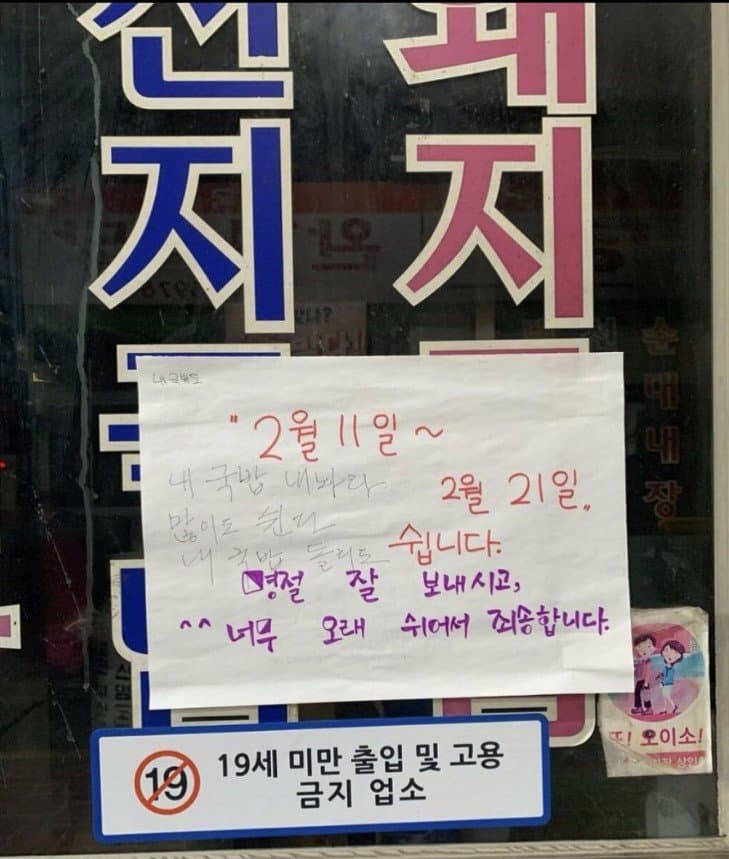 돼
지
지
내 국밥도
" 2월 11일 ~
2월 21일 „
쉽니다.
내 국밥 내놔라
많이도 쉰다
내 국밥 돌리도
명절 잘 보내시고,
^^ 너무 오래 쉬어서 죄송합니다.
순대내장
또! 오이소!
19
19세 미만 출입 및 고용
금지 업소